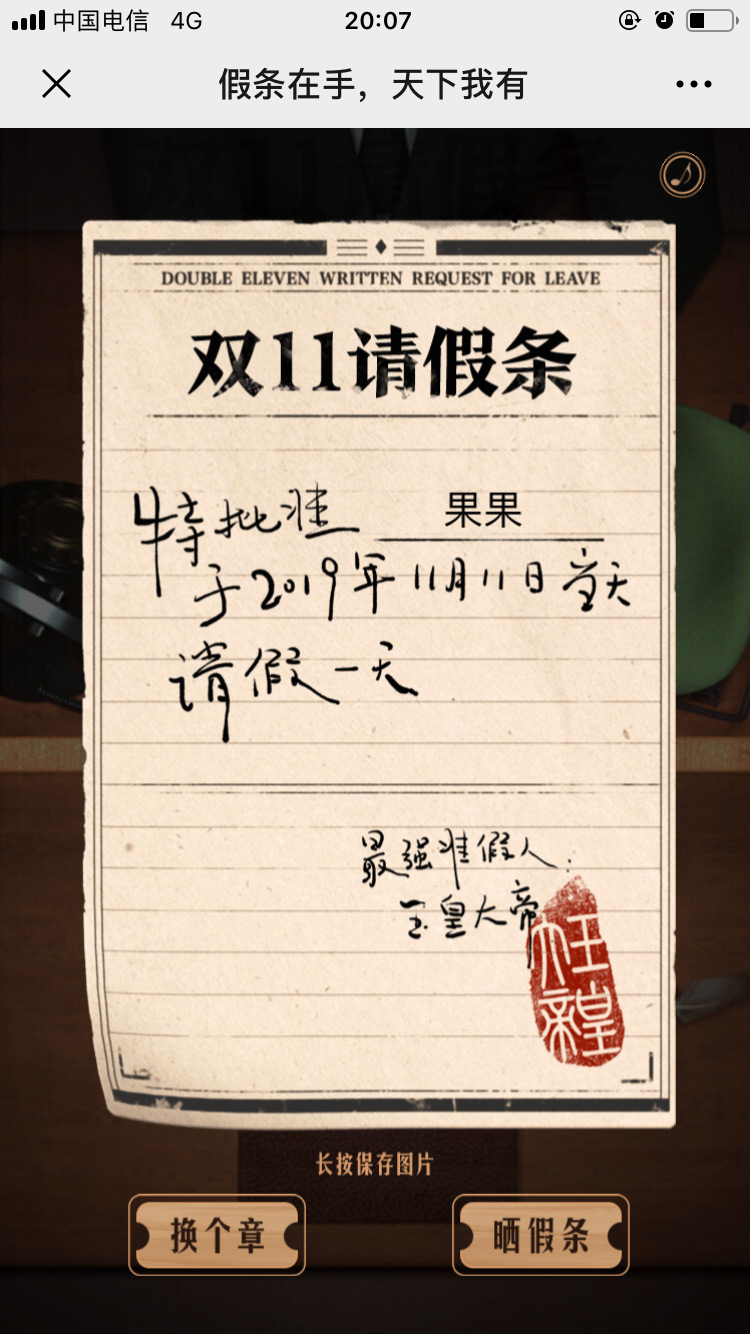 中国电信 4G 20:07
假条在手，天下我有
双11请假条
DOUBLE ELEVEN WRITTEN REQUEST FOR LEAVE
双11请假条
特批准 果果
于2019年11月11日当天
请假一天
最强准假人:
玉皇大帝
玉皇大帝
长按保存图片
换个章 晒假条